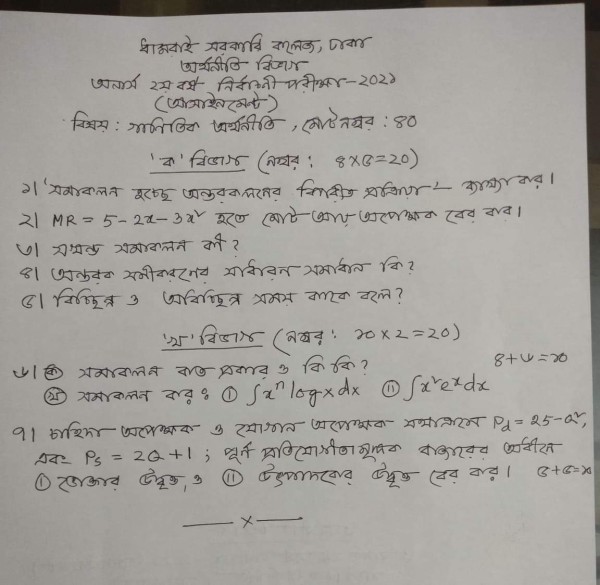 ধামরাই সরকারি কলেজ, ঢাকা
অর্থনীতি বিভাগ
অনার্স ২য় বর্ষ নির্বাচনী পরীক্ষা-২০২১
(অ্যাসাইনমেন্ট)
বিষয় : গাণিতিক অর্থনীতি, মোট নম্বর : ৪০
'ক' বিভাগ (নম্বর : ৪×৫=২০)
১। 'সমাকলন হচ্ছে অন্তরকলনের বিপরীত প্রক্রিয়া' - ব্যাখ্যা কর।
২। MR = 5-2x-3x² হতে মোট আয় অপেক্ষক বের কর।
৩। সমাকলন কী?
৪। অন্তরক সমীকরণের সাধারন সমাধান কি?
৫। বিচ্ছিন্ন ও অবিচ্ছিন্ন সময় কাকে বলে?
'খ' বিভাগ (নম্বর : ১০×২=২০)
৬। (ক) সমাকলন কত প্রকার ও কি কি? ৪+৬=১০
(খ) সমাকলন কর : (i) ∫xⁿ logx dx (ii) ∫x²eˣdx
৭। চাহিদা অপেক্ষক ও যোগান অপেক্ষক যথাক্রমে Pd = 25-Q²,
এবং Ps = 2Q+1 ; পূর্ণ প্রতিযোগীতামূলক বাজারের অধীনে
(i) ভোক্তার উদ্বৃত্ত, ও (ii) উৎপাদকের উদ্বৃত্ত বের কর। ৫+৫=১০
x